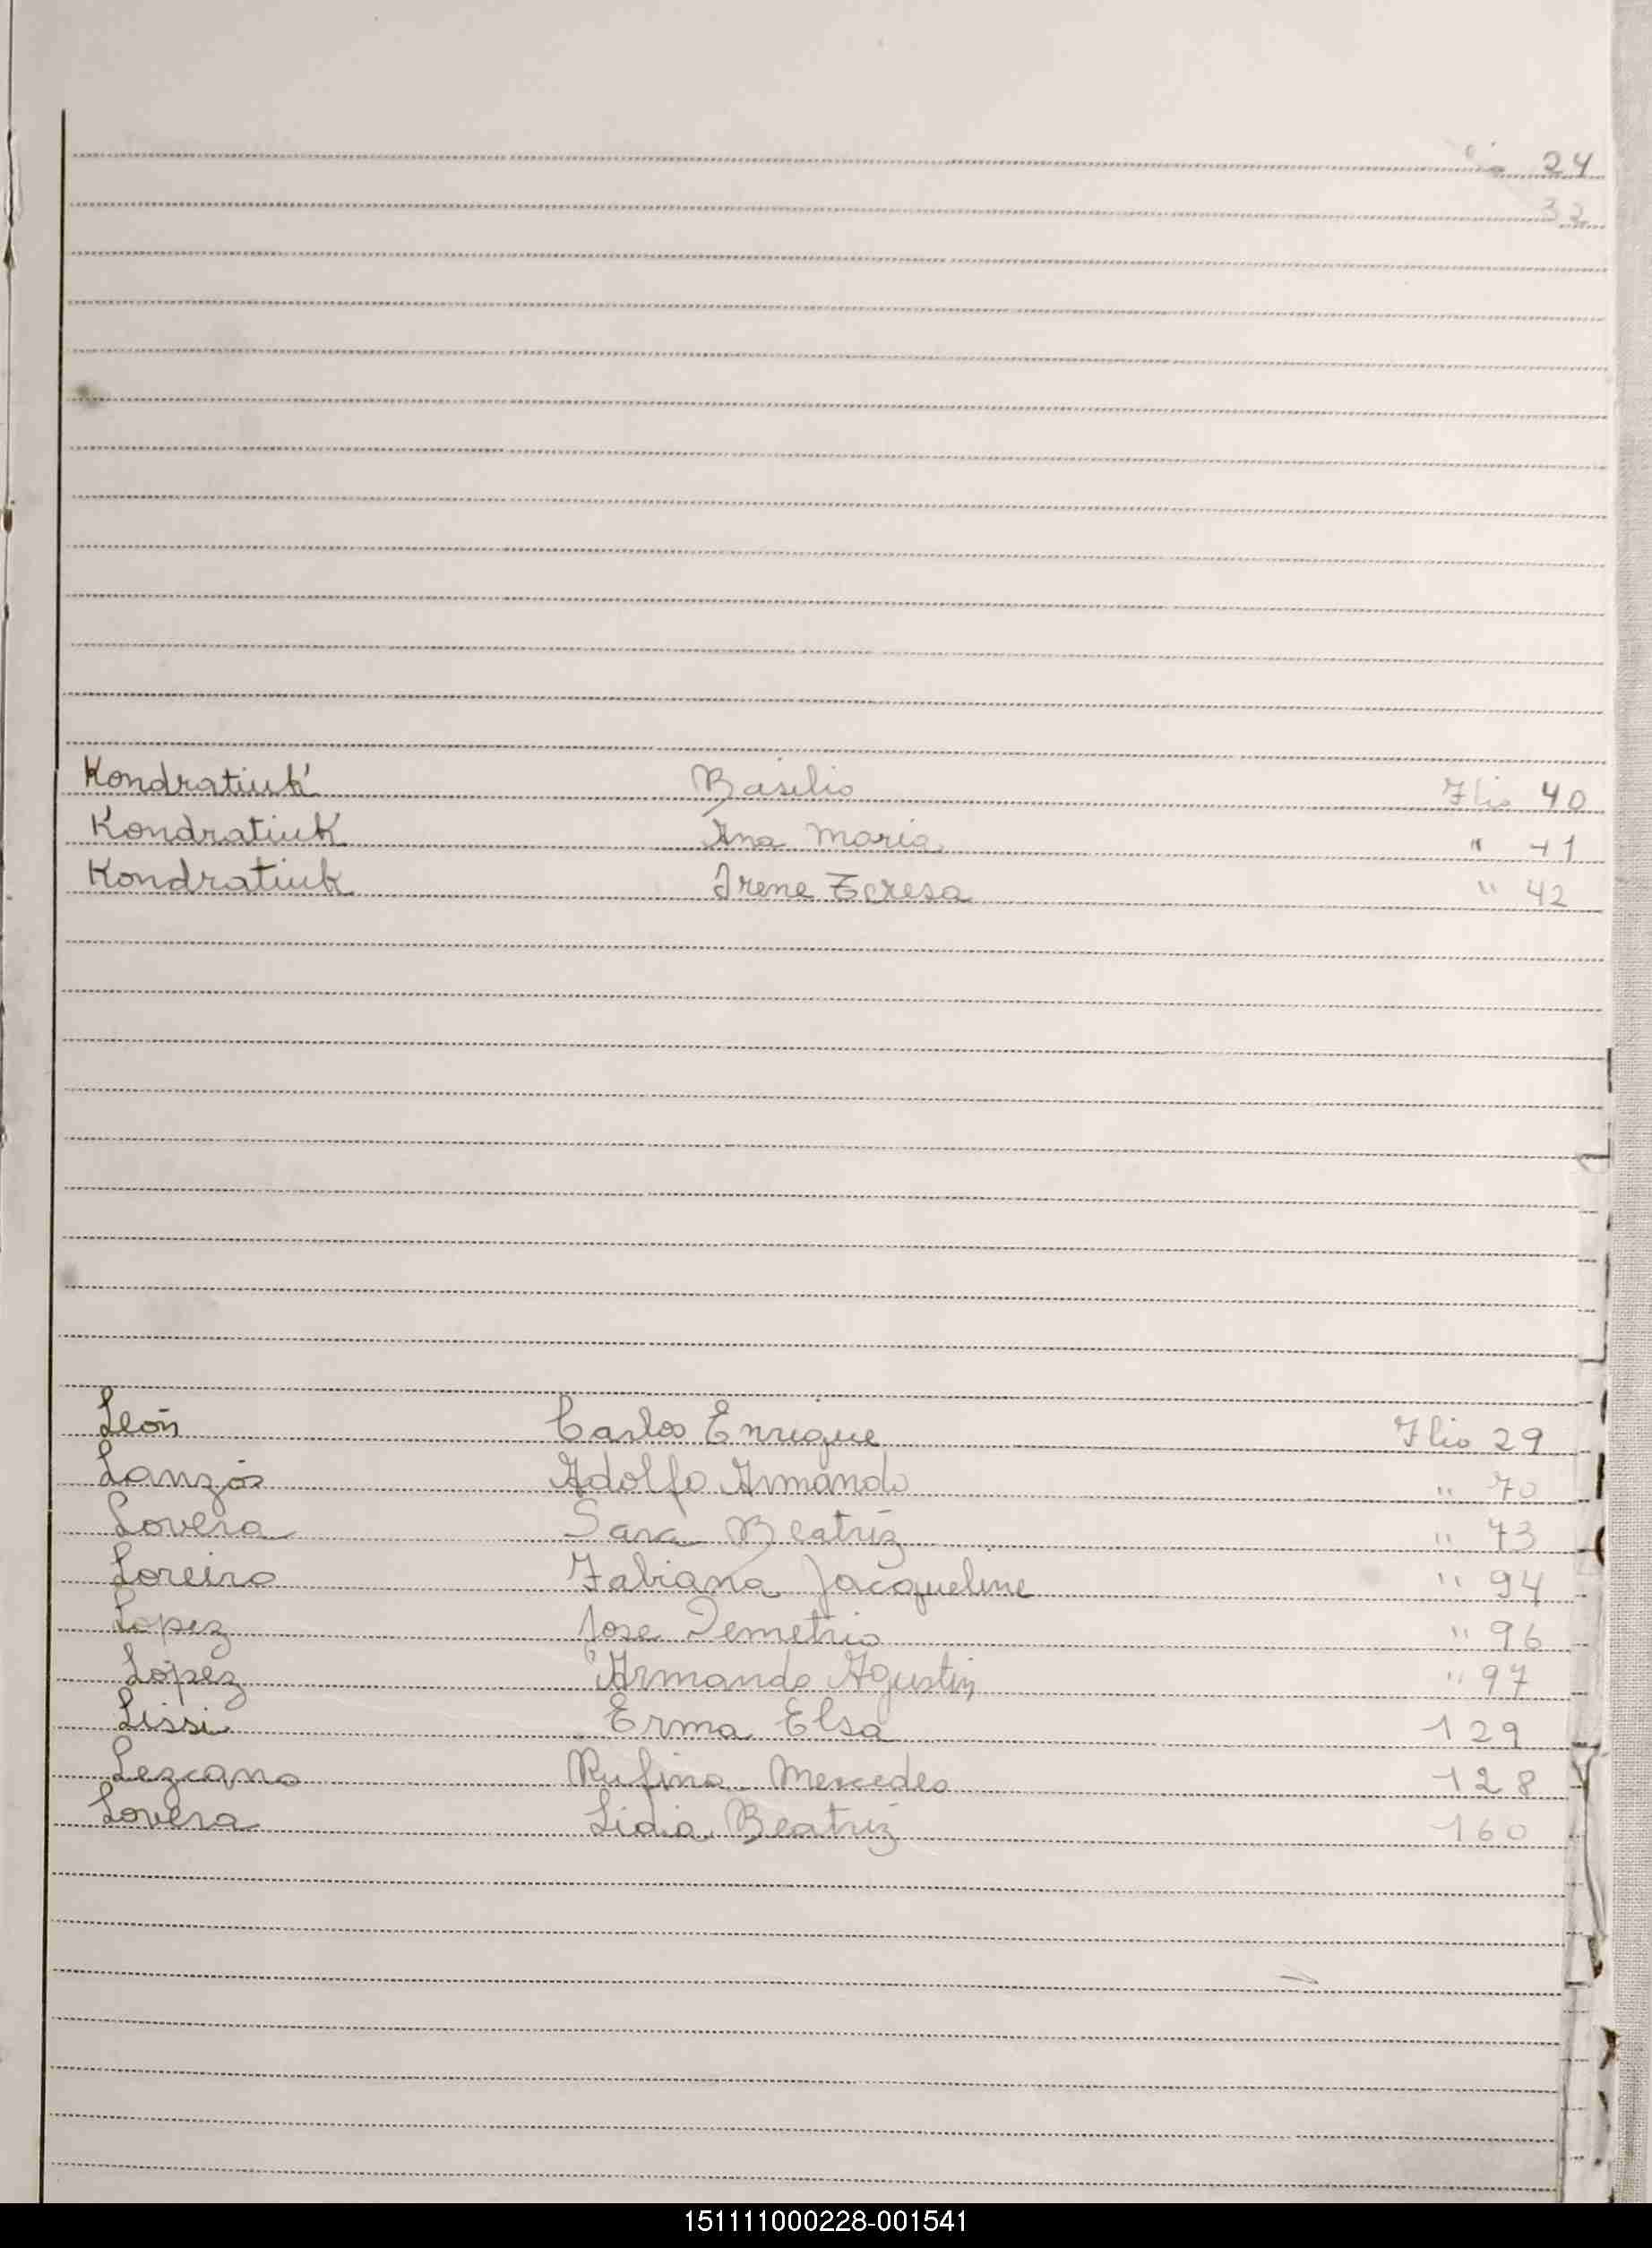 24
32
Kondratiuk Basilio Flio 40
Kondratiuk Ana Maria " 41
Kondratiuk Irene Teresa " 42
León Carlos Enrique Flio 29
Lanzós Adolfo Armando " 70
Lovera Sara Beatriz " 73
Loreiro Fabiana Jacqueline " 94
Lopez Jose Demetrio " 96
López Armando Agustin " 97
Lissi Erma Elsa 129
Lezcano Rufino Mercedes 128
Lovera Lidia Beatriz 160
151111000228-001541